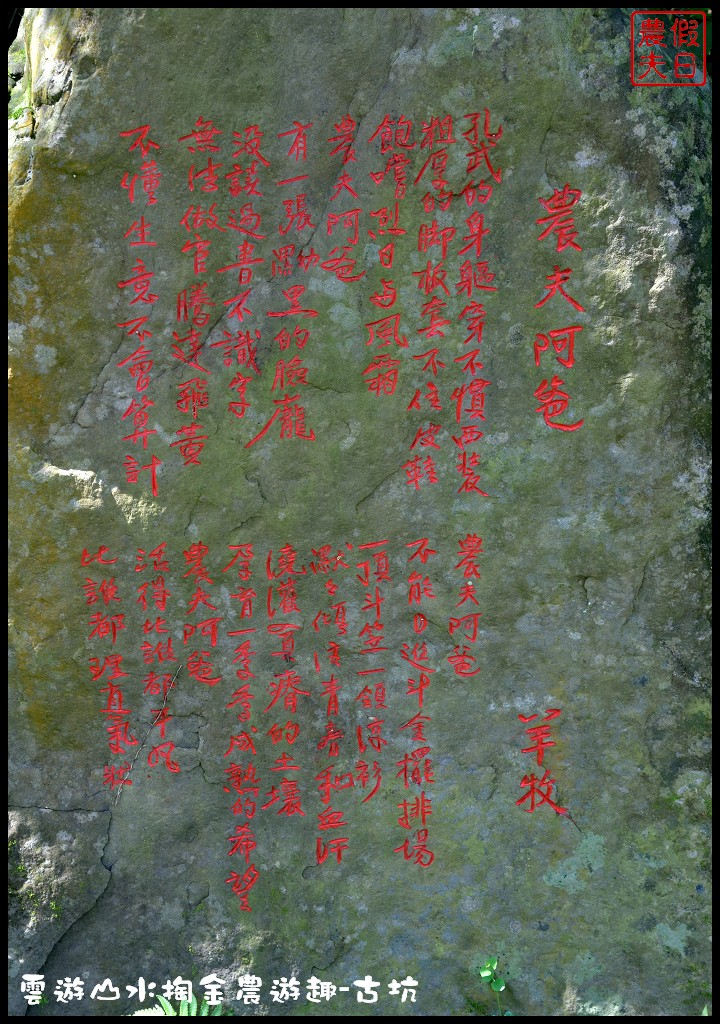 農夫阿爸
羊牧
孔武的身軀穿不慣西裝
粗厚的腳板套不住皮鞋
飽嚐烈日与風霜
農夫阿爸
有一張黝黑的臉龐
沒讀過書不識字
無法做官騰達飛黃
不懂生意不會算計
農夫阿爸
不能日進斗金擺排場
一頂斗笠一領涼衫
默々傾注青春和血汗
澆灌貧瘠的土壤
孕育一季季成熟的希望
農夫阿爸
活得比誰都平凡
比誰都理直氣壯
假日農夫
雲遊山水掏金農遊趣-古坑